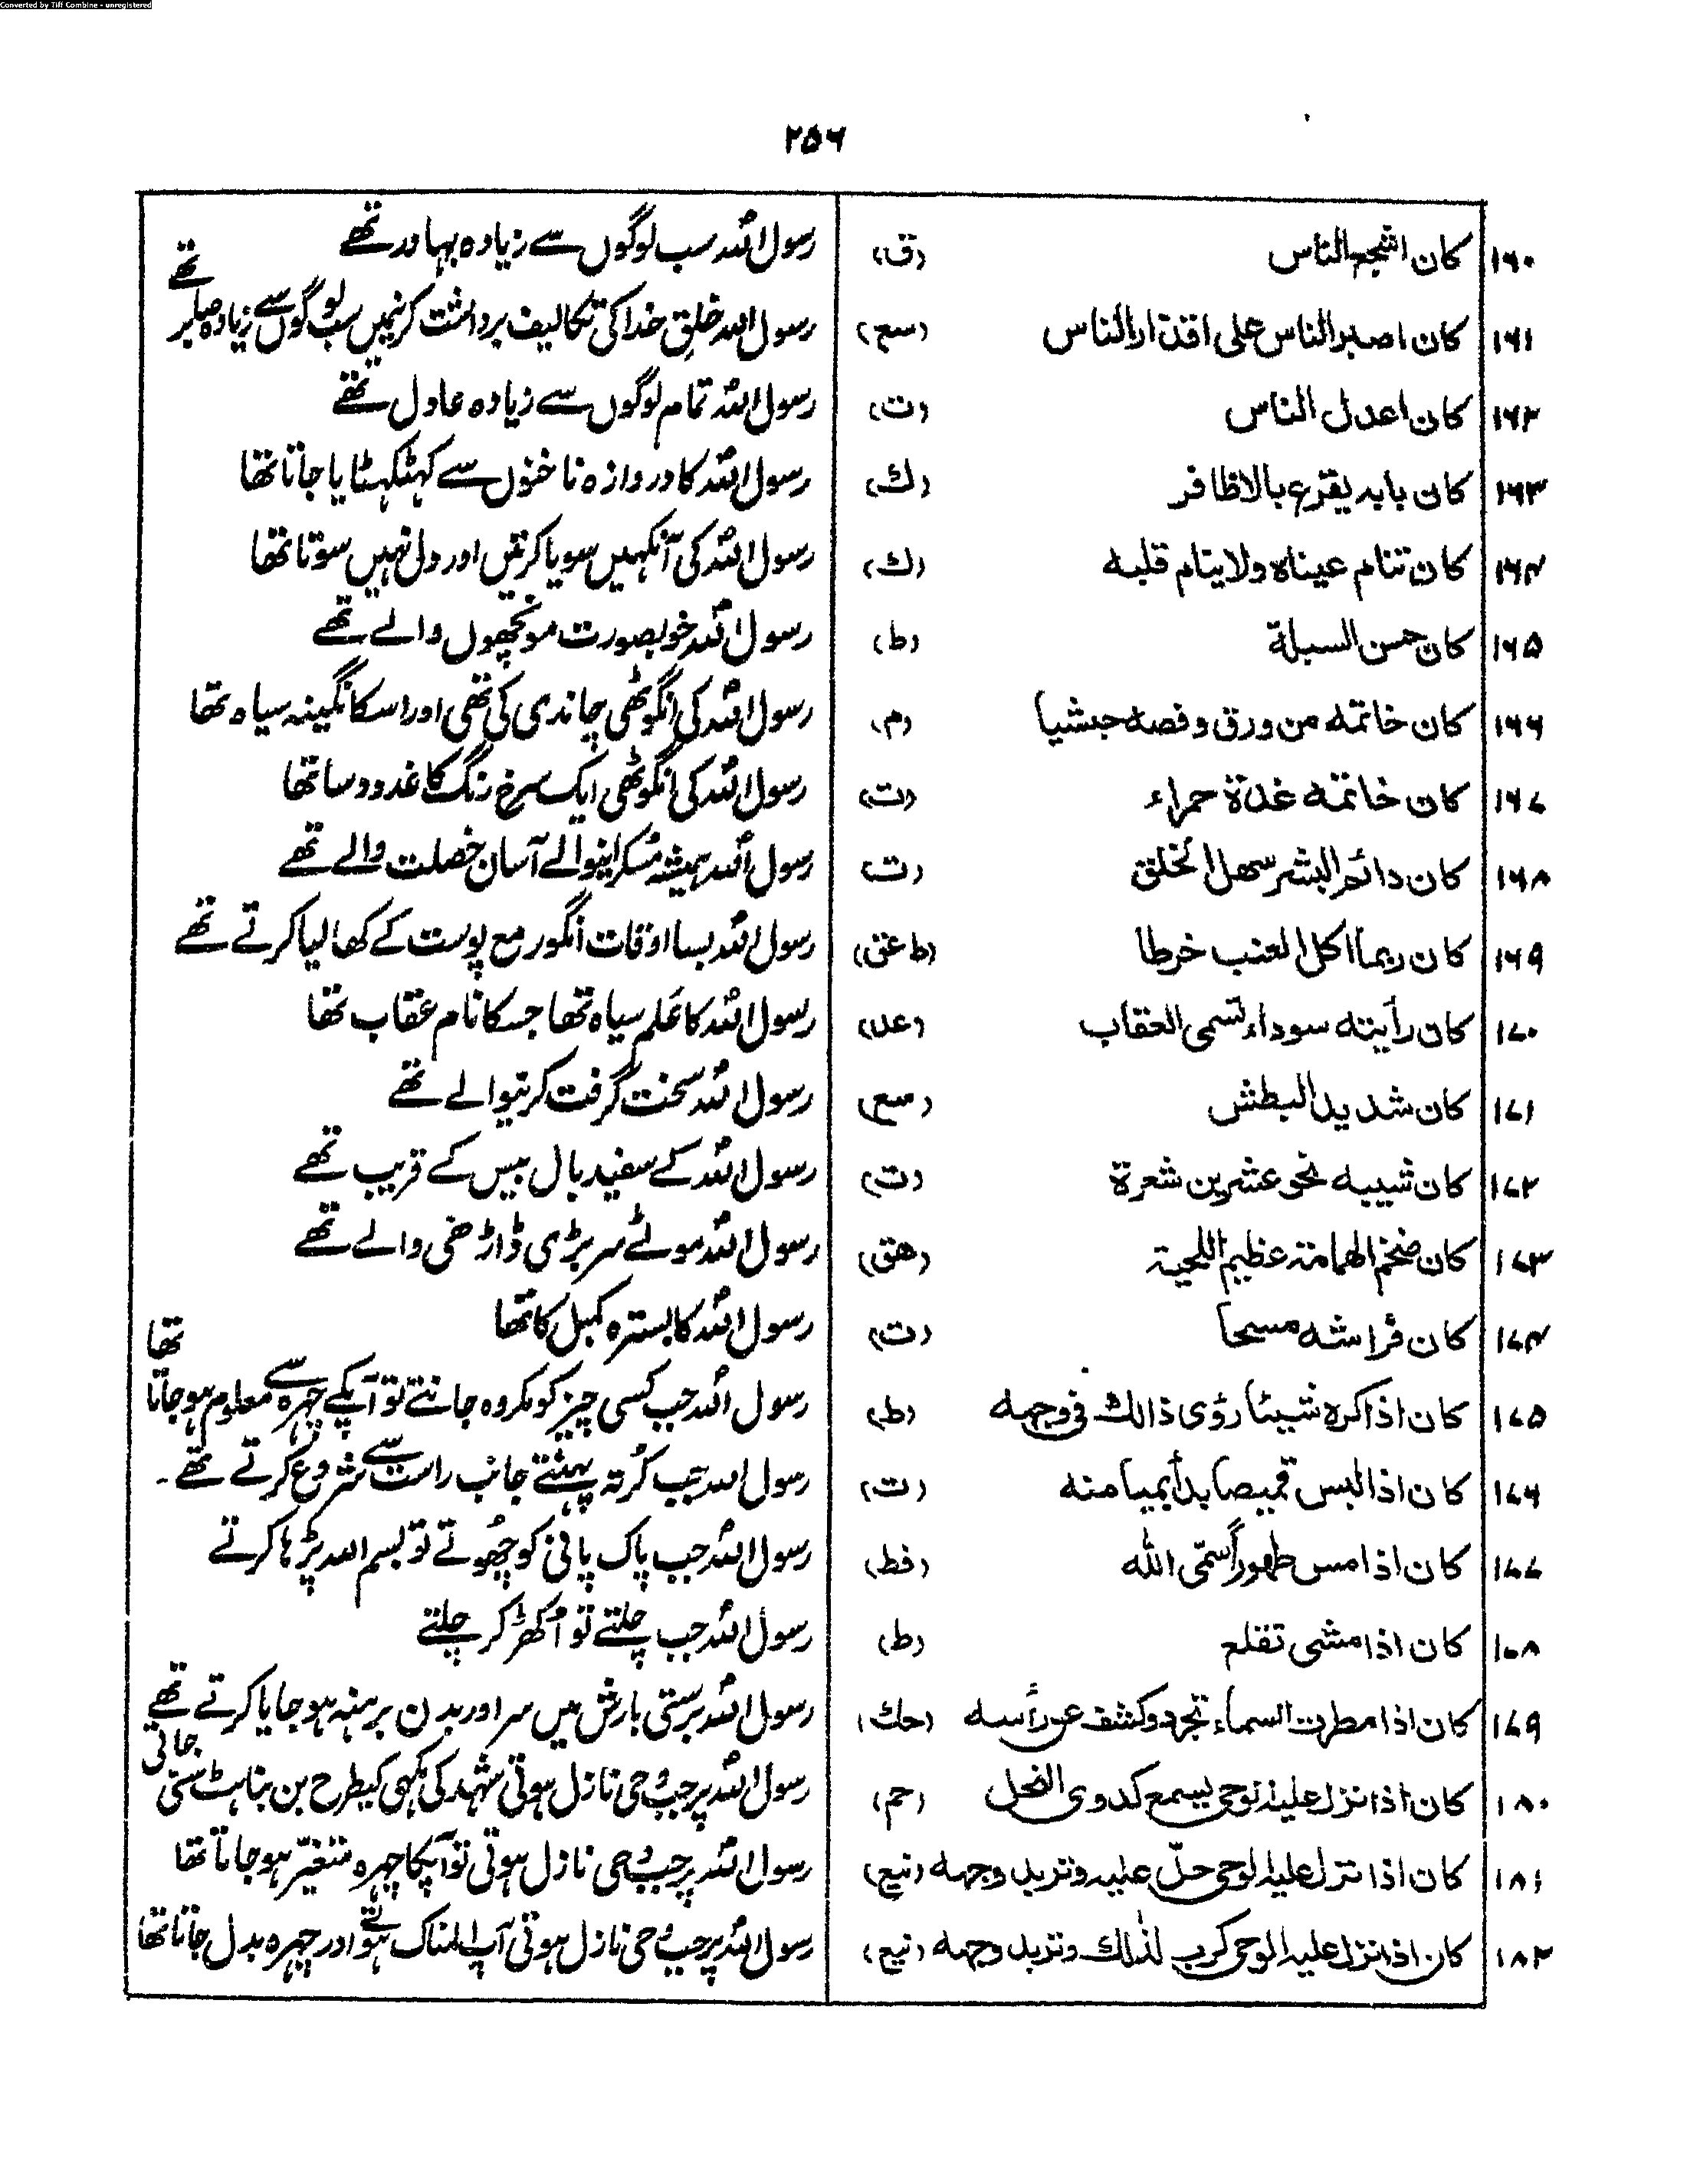 Converted by Tiff Combine - unregistered
۲۵۶
۱۶۰ کان اشجع الناس (ق) رسول اللہ سب لوگوں سے زیادہ بہادر تھے
۱۶۱ کان اصبر الناس علی اقذار الناس (سع) رسول اللہ خلق خدا کی تکالیف برداشت کرنیمیں سب لوگوں سے زیادہ صابر تھے
۱۶۲ کان اعدل الناس (ت) رسول اللہ تمام لوگوں سے زیادہ عادل تھے
۱۶۳ کان بابہ یقرع بالاظافر (ك) رسول اللہ کا دروازہ ناخنوں سے کہٹکہٹایا جاتا تھا
۱۶۴ کان تنام عیناہ ولا ینام قلبہ (ك) رسول اللہ کی آنکہیں سویا کرتیں اور دل نہیں سوتا تھا
۱۶۵ کان حسن السبلة (ط) رسول اللہ خوبصورت مونچھوں والے تھے
۱۶۶ کان خاتمہ من ورق وفصہ حبشیا (م) رسول اللہ کی انگوٹھی چاندی کی تھی اور اسکا نگینہ سیاہ تھا
۱۶۷ کان خاتمہ غدة حمراء (ت) رسول اللہ کی انگوٹھی ایک سرخ رنگ کا غدود سا تھا
۱۶۸ کان دائم البشر سھل الخلق (ت) رسول اللہ ہمیشہ مُسکرانیوالے آسان خصلت والے تھے
۱۶۹ کان ربما اکل العنب خرطا (ط عق) رسول اللہ بسا اوقات انگور مع پوست کے کھا لیا کرتے تھے
۱۷۰ کان رأیتہ سوداء تسمی العقاب (عد) رسول اللہ کا عَلم سیاہ تھا جسکا نام عقاب تھا
۱۷۱ کان شدید البطش (سع) رسول اللہ سخت گرفت کرنیوالے تھے
۱۷۲ کان شیبہ نحو عشرین شعرة (ت) رسول اللہ کے سفید بال بیس کے قریب تھے
۱۷۳ کان ضخم الھامة عظیم اللحیة (ھق) رسول اللہ موٹے سر بڑی ڈاڑھی والے تھے
۱۷۴ کان فراشہ مسحا (ت) رسول اللہ کا بسترہ کمبل کا تھا
۱۷۵ کان اذا کرہ شیئا رؤی ذالك فی وجہہ (ط) رسول اللہ جب کسی چیز کو مکروہ جانتے تو آپکے چہرہ سے معلوم ہو جاتا تھا
۱۷۶ کان اذا لبس قمیصا بدأ بمیامنہ (ت) رسول اللہ جب کُرتہ پہنتے جانب راست سے شروع کرتے تھے۔
۱۷۷ کان اذا مس طھوراً سمّی اللّٰہ (فط) رسول اللہ جب پاک پانی کو چُھوتے تو بسم اللہ پڑہا کرتے
۱۷۸ کان اذا مشی تقلع (ط) رسول اللہ جب چلتے تو اُکھڑ کر چلتے
۱۷۹ کان اذا مطرت السماء تجرد وکشف عن رأسہ (حك) رسول اللہ برستی بارش میں سر اور بدن برہنہ ہو جایا کرتے تھے
۱۸۰ کان اذا نزل علیہ الوحی یسمع کدوی النحل (حم) رسول اللہ پر جب وحی نازل ہوتی شہد کی مکہی کیطرح بن بناہٹ سُنی جاتی
۱۸۱ کان اذا نزل علیہ الوحی حلّ علیہ وتربد وجہہ (نیع) رسول اللہ پر جب وحی نازل ہوتی تو آپکا چہرہ متغیّر ہو جاتا تھا
۱۸۲ کان اذا نزل علیہ الوحی کرب لذٰلك وتربد وجہہ (نیع) رسول اللہ پر جب وحی نازل ہوتی آپ المناک ہوتے اور چہرہ بدل جاتا تھا